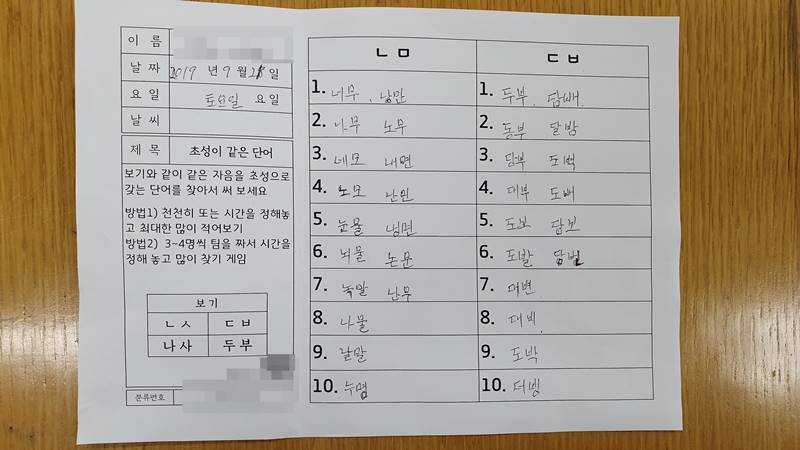 이 름
날 짜 2019 년 9 월 28 일
요 일 토요일 요 일
날 씨
제 목 초성이 같은 단어
보기와 같이 같은 자음을 초성으로
갖는 단어를 찾아서 써 보세요
방법1) 천천히 또는 시간을 정해놓
고 최대한 많이 적어보기
방법2) 3~4명씩 팀을 짜서 시간을
정해 놓고 많이 찾기 게임
보 기
ㄴ ㅅ ㄷ ㅂ
나 사 두 부
분류번호
ㄴ ㅁ ㄷ ㅂ
1. 너무, 낭만 1. 두부, 담배
2. 나무 노무 2. 동부 달밤
3. 네모 내면 3. 당부 도벽
4. 노모 난민 4. 대부 도배
5. 눈물 냉면 5. 도보 담보
6. 뇌물 논문 6. 도발 답변
7. 녹말 난무 7. 대변
8. 나물 8. 대비
9. 낱말 9. 도박
10. 누명 10. 더빙